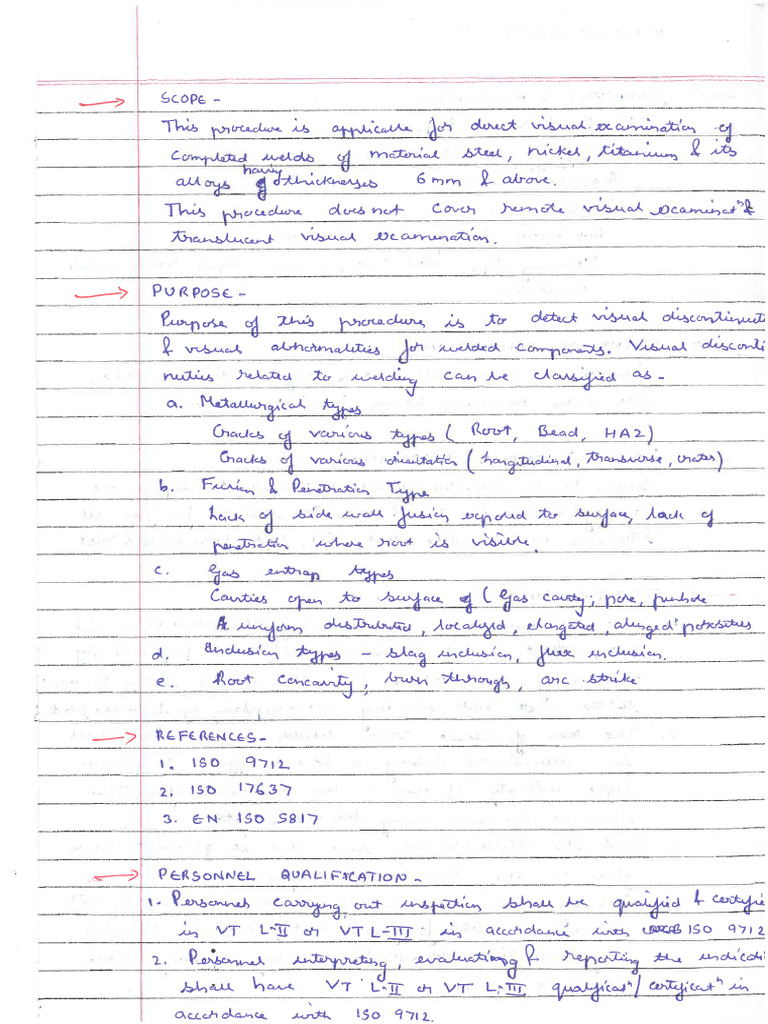 SCOPE -
This procedure is applicable for direct visual examination of
completed welds of material steel, nickel, titanium & its
having
alloys of thicknesses 6 mm & above.
This procedure does not cover remote visual examinatⁿ &
translucent visual examination.
PURPOSE -
Purpose of this procedure is to detect visual discontinuit
& visual abnormalities for welded components. Visual disconti
nuities related to welding can be classified as -
a. Metallurgical types
Cracks of various types ( Root, Bead, HAZ)
Cracks of various orientation ( Longitudinal, transverse, crater)
b. Fusion & Penetration Type
Lack of side wall fusion exposed to surface, lack of
penetration where root is visible.
c. Gas entrap types
Cavities open to surface (Gas cavity; pore, pinhole
uniform distributed, localized, elongated, alinged porosities
d. Inclusion types - slag inclusion, flux inclusion.
e. Root concavity, burn through, arc strike
REFERENCES -
1. ISO 9712
2. ISO 17637
3. EN ISO 5817
PERSONNEL QUALIFICATION -
1. Personnel carrying out inspection shall be qualified & certifie
in VT L-II or VT L-III in accordance with ISO 9712
2. Personnel interpreting, evaluating & reporting the indicati
shall have VT L-II or VT L-III qualificatⁿ/certificatⁿ in
accordance with ISO 9712.